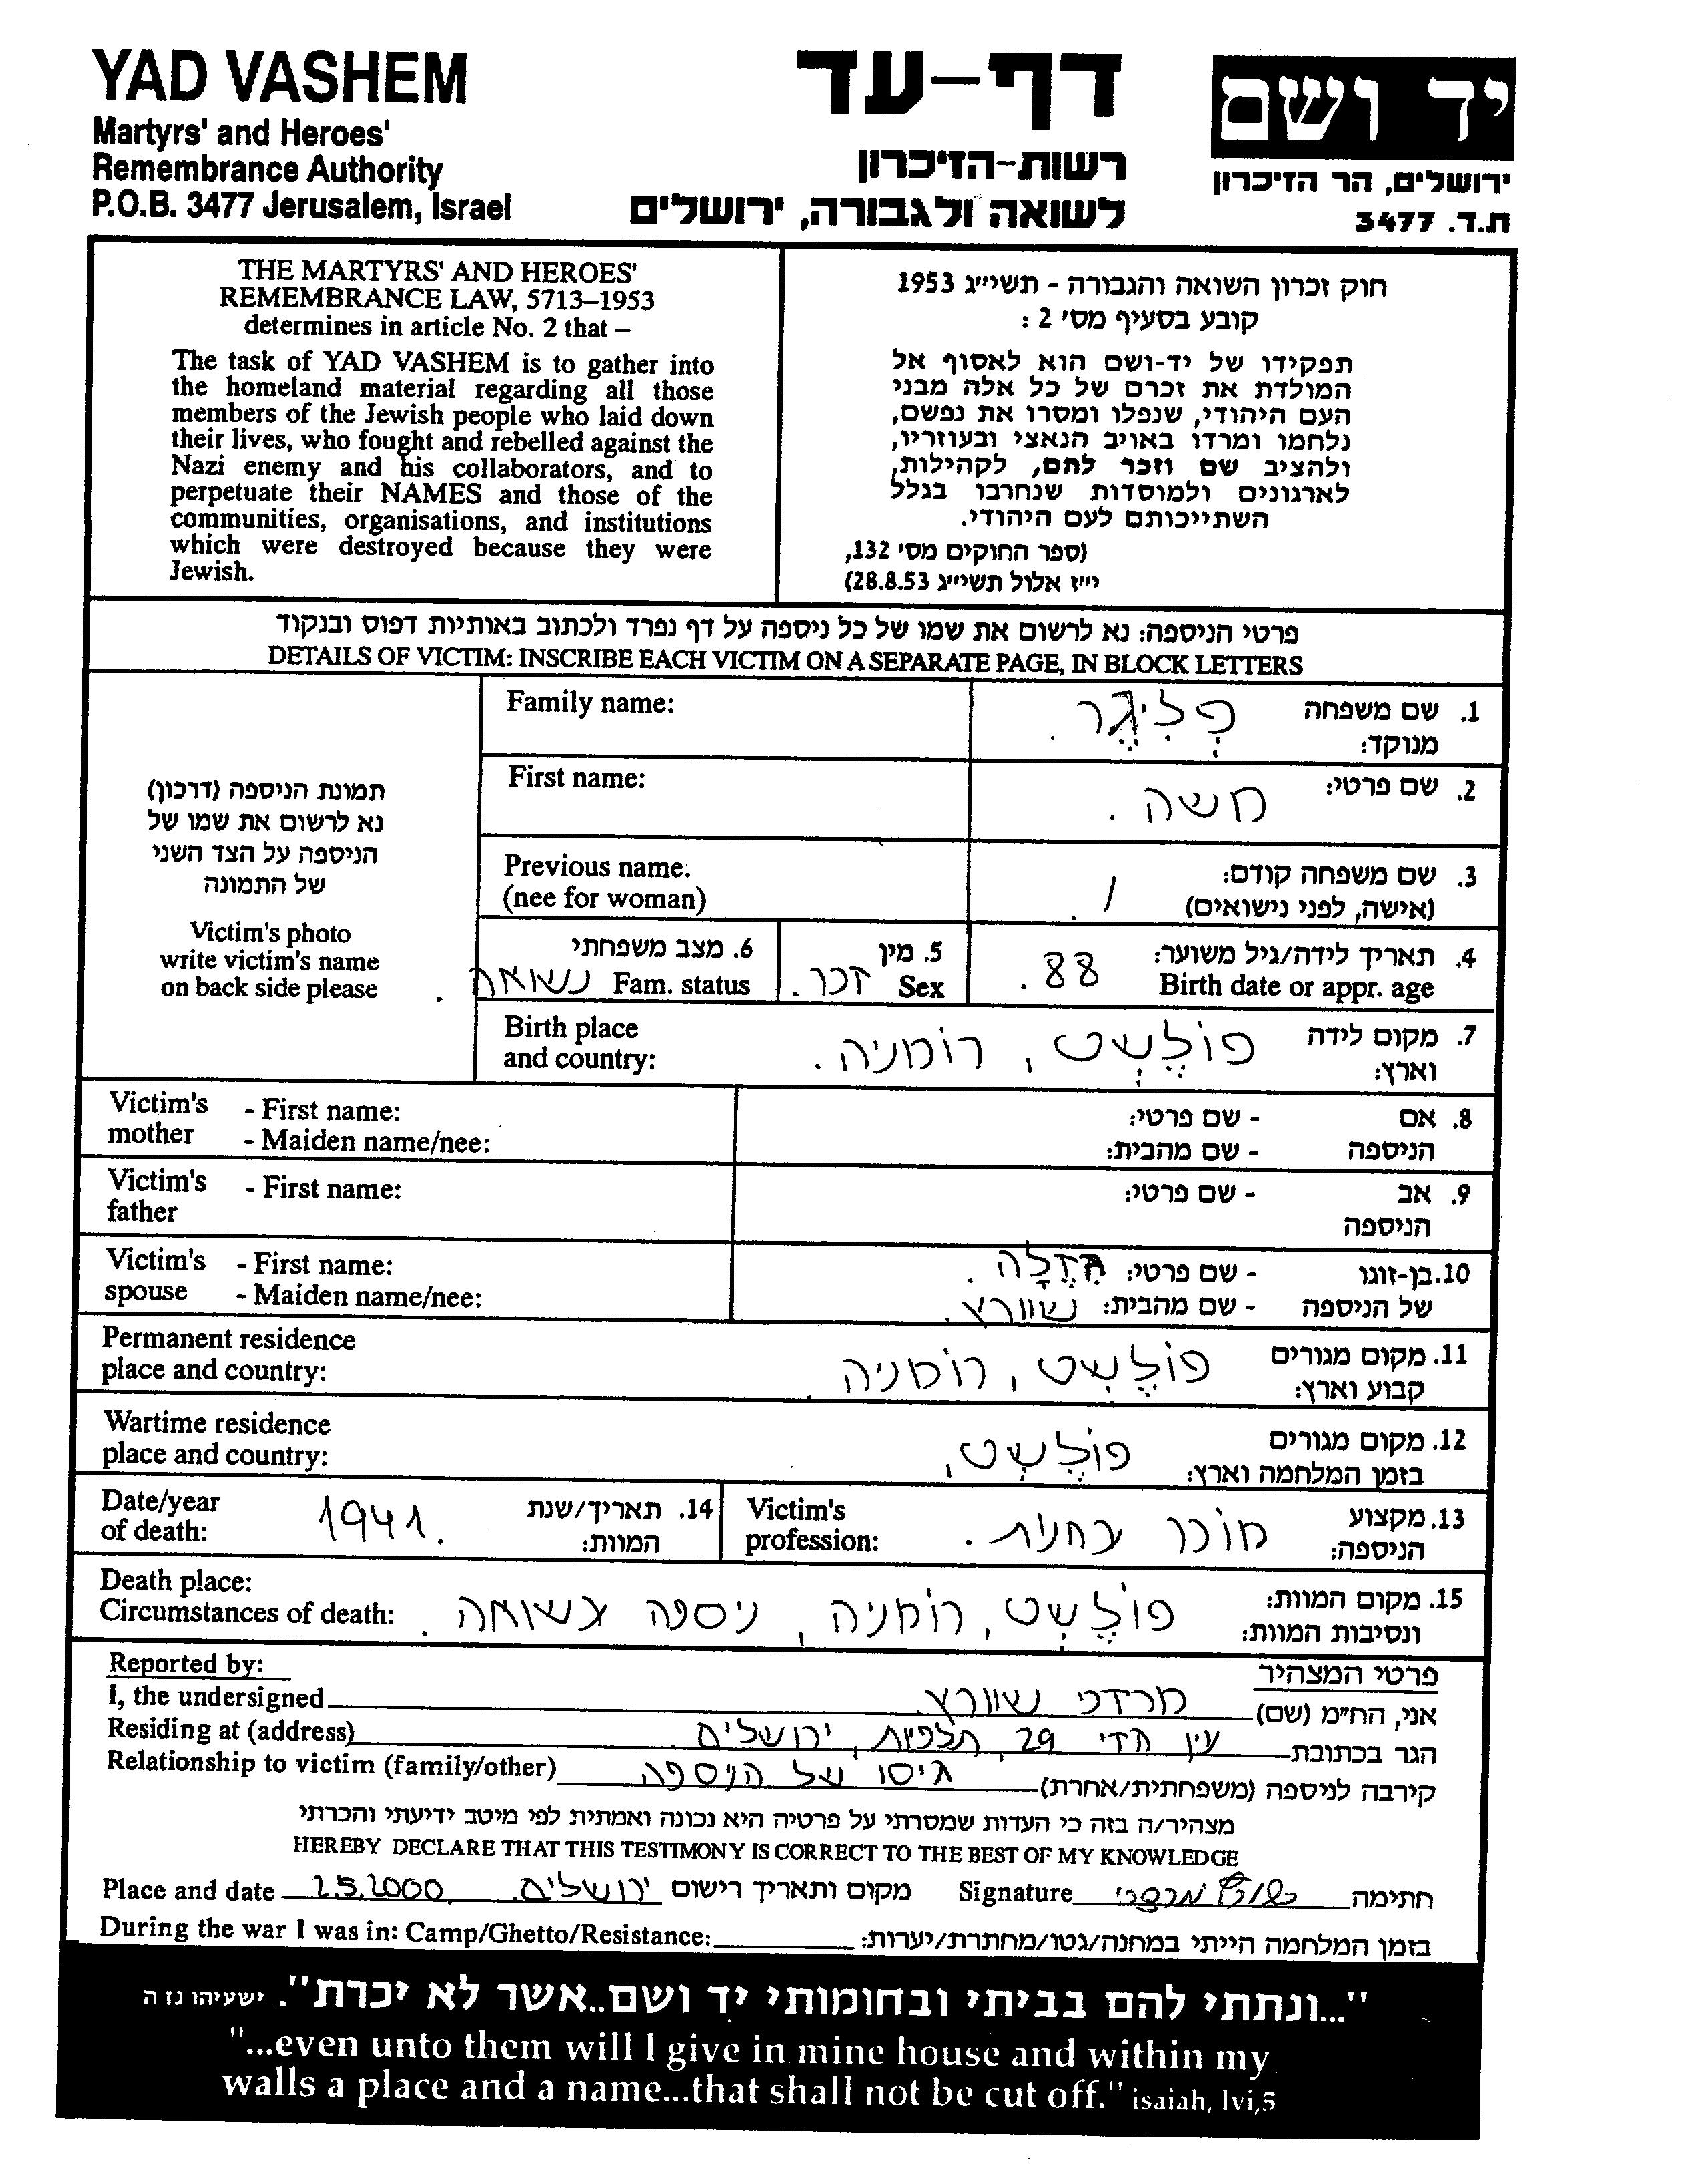 YAD VASHEM
Martyrs' and Heroes'
Remembrance Authority
P.O.B. 3477 Jerusalem, Israel
דף-עד
רשות-הזיכרון
לשואה ולגבורה, ירושלים
יד ושם
ירושלים, הר הזיכרון
ת.ד. 3477
THE MARTYRS' AND HEROES'
REMEMBRANCE LAW, 5713–1953
determines in article No. 2 that –
The task of YAD VASHEM is to gather into
the homeland material regarding all those
members of the Jewish people who laid down
their lives, who fought and rebelled against the
Nazi enemy and his collaborators, and to
perpetuate their NAMES and those of the
communities, organisations, and institutions
which were destroyed because they were
Jewish.
חוק זכרון השואה והגבורה - תשי״ג 1953
קובע בסעיף מס׳ 2 :
תפקידו של יד-ושם הוא לאסוף אל
המולדת את זכרם של כל אלה מבני
העם היהודי, שנפלו ומסרו את נפשם,
נלחמו ומרדו באויב הנאצי ובעוזריו,
ולהציב שם וזכר להם, לקהילות,
לארגונים ולמוסדות שנחרבו בגלל
השתייכותם לעם היהודי.
(ספר החוקים מס׳ 132,
י״ז אלול תשי״ג 28.8.53)
פרטי הניספה: נא לרשום את שמו של כל ניספה על דף נפרד ולכתוב באותיות דפוס ובנקוד
DETAILS OF VICTIM: INSCRIBE EACH VICTIM ON A SEPARATE PAGE, IN BLOCK LETTERS
תמונת הניספה (דרכון)
נא לרשום את שמו של
הניספה על הצד השני
של התמונה
Victim's photo
write victim's name
on back side please
Family name: פְלִיגֶר. 1. שם משפחה
מנוקד:
First name: משה. 2. שם פרטי:
Previous name: / . 3. שם משפחה קודם:
(nee for woman) (אישה, לפני נישואים)
4. תאריך לידה/גיל משוער: 88. 5. מין זכר. 6. מצב משפחתי נשואה.
Birth date or appr. age Sex Fam. status
Birth place פוֹלֶשְט, רומניה. 7. מקום לידה
and country: וארץ:
Victim's - First name: - שם פרטי: 8. אם
mother - Maiden name/nee: - שם מהבית: הניספה
Victim's - First name: - שם פרטי: 9. אב
father הניספה
Victim's - First name: - שם פרטי: 10. בן-זוגו
spouse - Maiden name/nee: - שם מהבית: שוורץ. של הניספה
Permanent residence פוֹלֶשְט, רומניה. 11. מקום מגורים
place and country: קבוע וארץ:
Wartime residence פוֹלֶשְט, 12. מקום מגורים
place and country: בזמן המלחמה וארץ:
Date/year 1941. 14. תאריך/שנת
of death: המוות:
Victim's מוכר בחנות. 13. מקצוע
profession: הניספה:
Death place: 15. מקום המוות:
Circumstances of death: פוֹלֶשְט, רומניה, ניספה בשואה. ונסיבות המוות:
Reported by: פרטי המצהיר
I, the undersigned מרדכי שוורץ. אני, הח״מ (שם)
Residing at (address) 29, תלפיות, ירושלים. הגר בכתובת
Relationship to victim (family/other) גיסו של הניספה קירבה לניספה (משפחתית/אחרת)
מצהיר/ה בזה כי העדות שמסרתי על פרטיה היא נכונה ואמתית לפי מיטב ידיעתי והכרתי
HEREBY DECLARE THAT THIS TESTIMONY IS CORRECT TO THE BEST OF MY KNOWLEDGE
Place and date 2.5.2000 ירושלים. מקום ותאריך רישום Signature שוורץ מרדכי חתימה
During the war I was in: Camp/Ghetto/Resistance: בזמן המלחמה הייתי במחנה/גטו/מחתרת/יערות:
"...ונתתי להם בביתי ובחומותי יד ושם..אשר לא יכרת". ישעיהו נז ה
"...even unto them will I give in mine house and within my
walls a place and a name...that shall not be cut off." isaiah, lvi,5